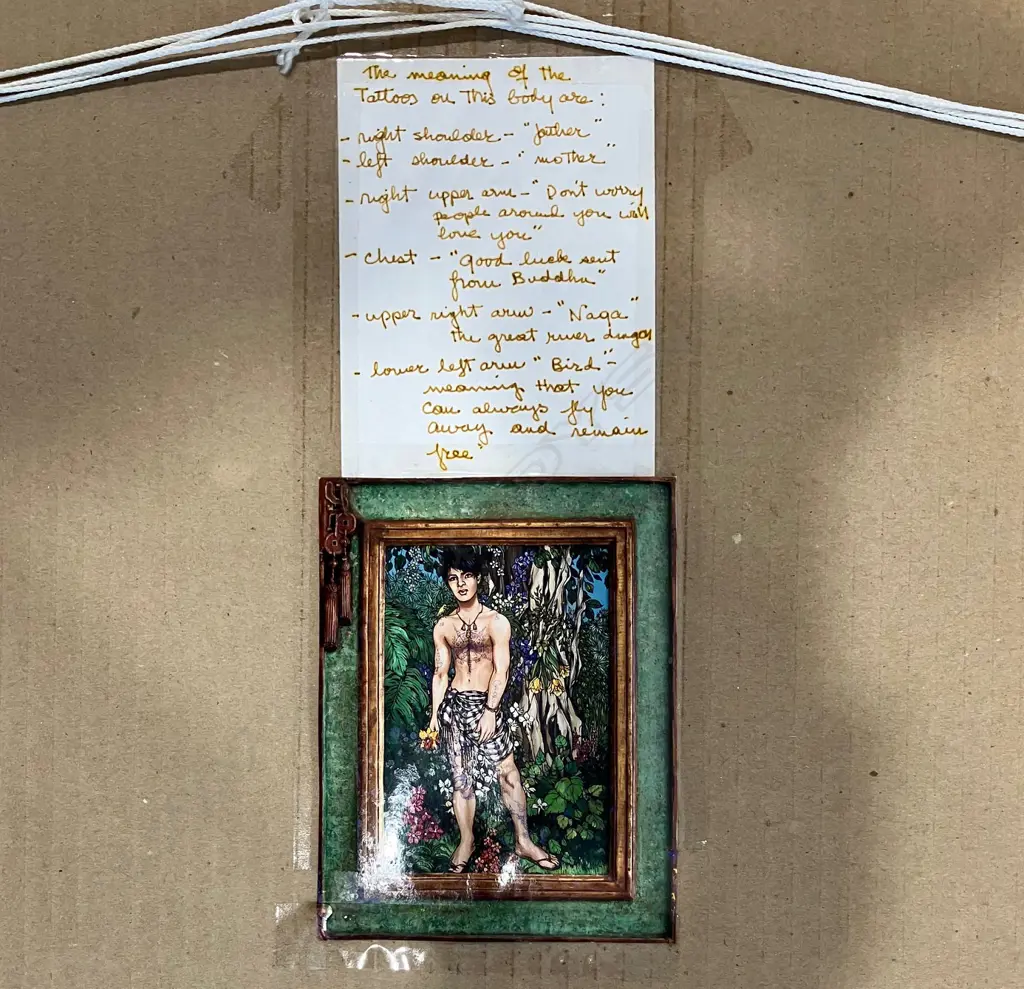 The meaning of the
Tattoos on This body are:
- right shoulder - "father"
- left shoulder - "mother"
- right upper arm - "Don't worry
people around you will
love you"
- chest - "good luck sent
from Buddha"
- upper right arm - "Naga"
the great river dragon
- lower left arm "Bird" -
meaning that you
can always fly
away and remain
free"